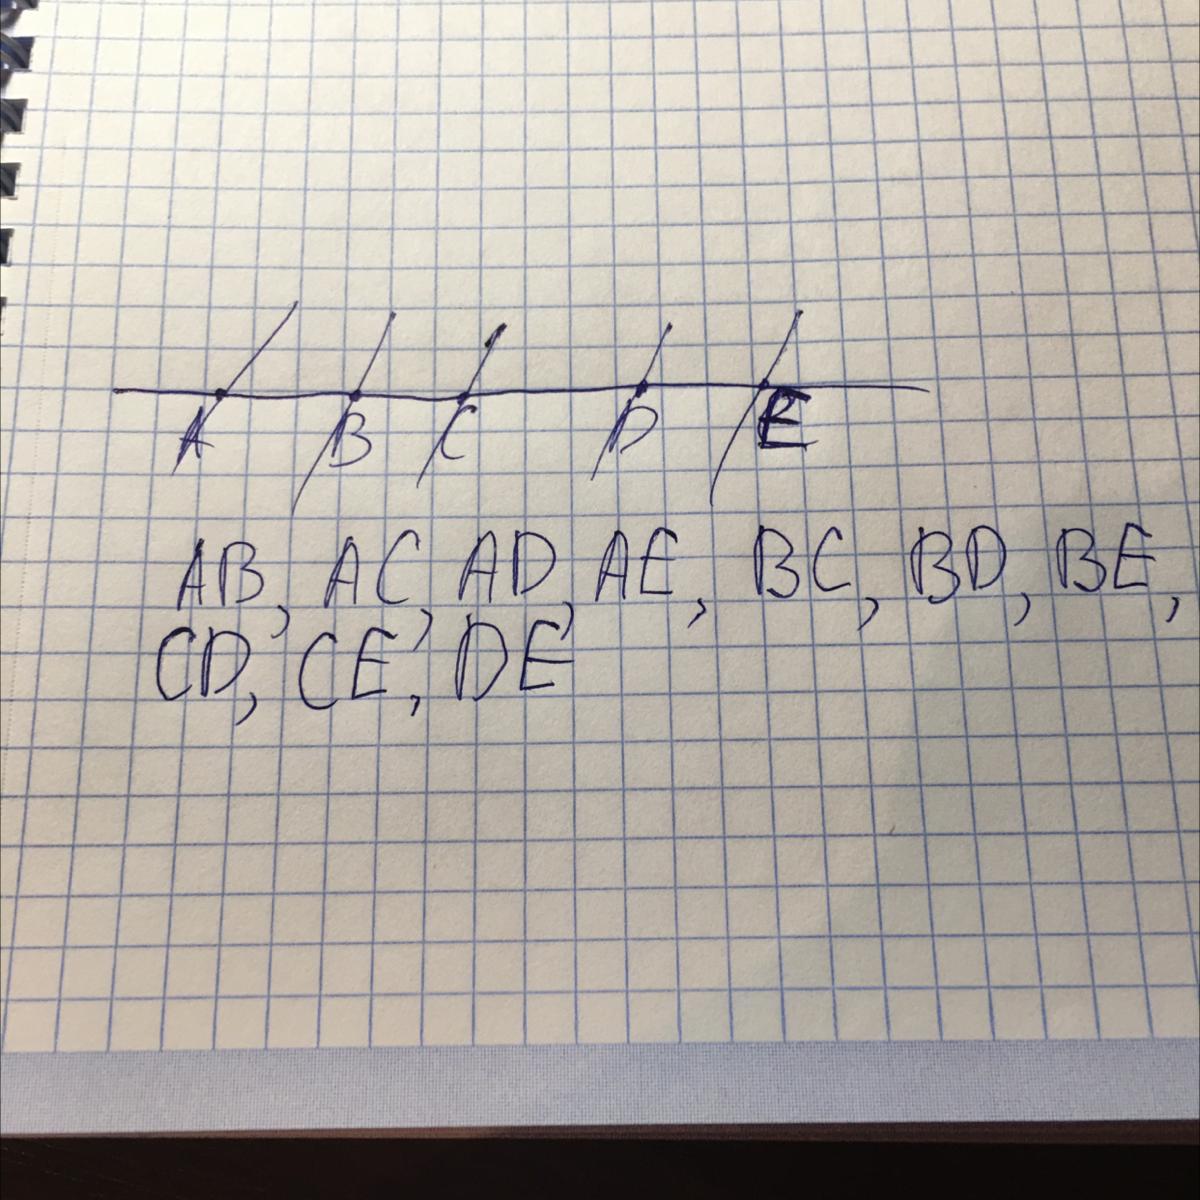 A B C D E
AB, AC, AD, AE, BC, BD, BE,
CD, CE, DE